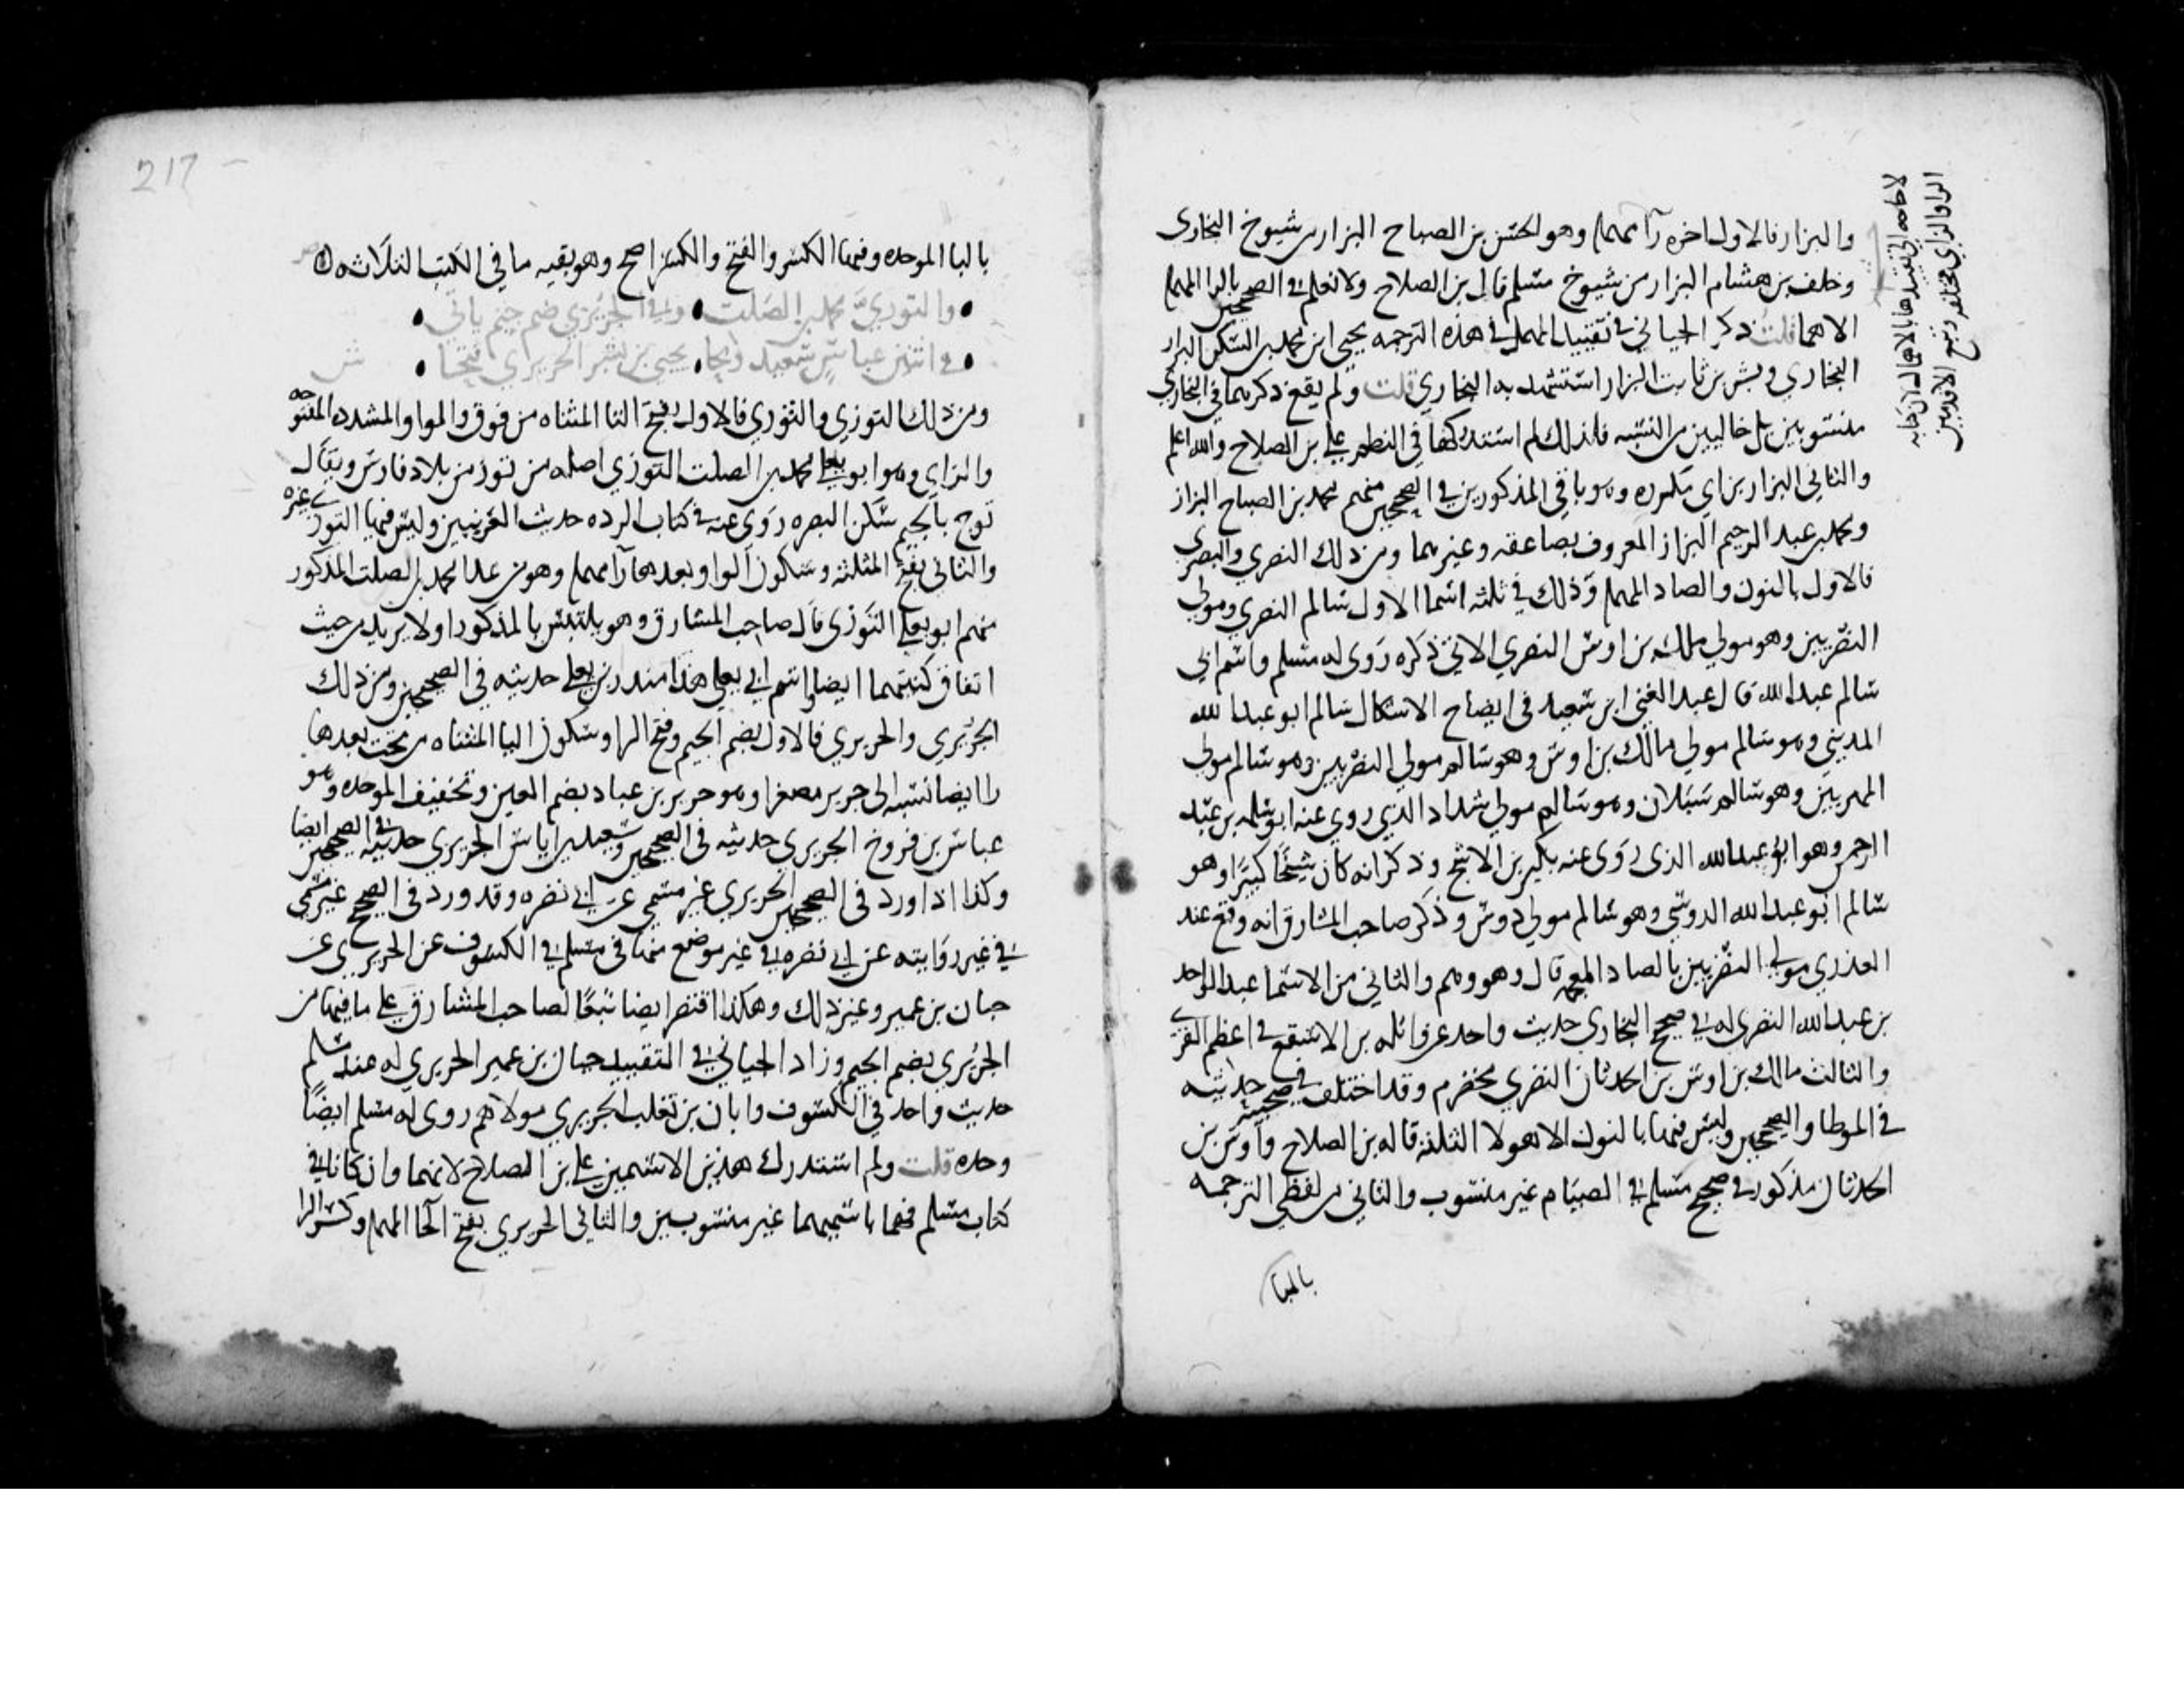 والبزار فالاول اخره را مهملة وهو الحسن بن الصباح البزار من شيوخ البخاري
وخلف بن هشام البزار من شيوخ مسلم قال بن الصلاح ولا نعلم في الصحيحين بالرا المهملة
الا هما قلت ذكر الجياني في تقييد المهمل في هذه الترجمه يحيى ابن محمد بن السكن البزار
البخاري وبشر بن ثابت البزار استشهد به البخاري قلت ولم يقع ذكرهما في البخاري
منسوبين بل خاليين من النسبه فلذلك لم استدركها في النظم على بن الصلاح والله اعلم
والثاني البزاز بزاي مكرره وهو باقي المذكورين في الصحيحين منهم محمد بن الصباح البزاز
ومحمد بن عبد الرحيم البزاز المعروف بصاعقه وغيرهما ومن ذلك النصري والبصري
فالاول بالنون والصاد المهملة وذلك في ثلثه اسما الاول سالم النصري ومولى
النصريين وهو مولى ملك بن اوس النصري الاتي ذكره روى له مسلم واسم ابي
سالم عبد الله قال عبد الغني ابن سعيد في ايضاح الاشكال سالم ابو عبد الله
المديني وهو سالم مولى مالك بن اوس وهو سالم مولى النصريين وهو سالم مولى
المهريين وهو سالم سبلان وهو سالم مولى شداد الذي روى عنه ابو سلمه بن عبد
الرحمن وهو ابو عبد الله الذي روى عنه بكير بن الاشج وذكر انه كان شيخا كبيرا وهو
سالم ابو عبد الله الدوسي وهو سالم مولى دوس وذكر صاحب المشارق انه وقع عند
العذري مولى النضريين بالضاد المعجمه قال وهو وهم والثاني من الاسما عبد الواحد
بن عبد الله النصري له في صحيح البخاري حديث واحد عن واثله بن الاسقع في اعظم الفرى
والثالث مالك بن اوس بن الحدثان النصري مخضرم وقد اختلف في صحبته حديثه
في الموطا والصحيحين وليس فيها بالنون الا هولا الثلثه قاله بن الصلاح واوس بن
الحدثان مذكور في صحيح مسلم في الصيام غير منسوب والثاني من لفظي الترجمه
بالبا
بالبا الموحده وفيها الكسر والفتح والكسر اصح وهو بقيه ما في الكتب الثلاثه
والتوزي محمد بن الصلت • وفي الجريري ضم جيم ياتي •
• في اثنين عباس سعيد وبحا • يحيى بن بشر الحريري فتحا • ش
ومن ذلك التوزي والثوري فالاول بفتح التا المثناه من فوق والواو المشدده المفتوحه
والزاي وهو ابو يعلى محمد بن الصلت التوزي اصله من توز من بلاد فارس ويقال
توج بالجيم سكن البصره روى عنه في كتاب الرده حديث العرنيين وليس فيها التوزي غيره
والثاني بفتح المثلثه وسكون الواو وبعدها را مهملة وهو من عدا محمد بن الصلت المذكور
منهم ابو يعلى الثوري قال صاحب المشارق وهو يلتبس بالمذكور اولا يريد من حيث
اتفاق كنيتهما ايضا واسم ابي يعلى هذا منذر بن يعلى حديثه في الصحيحين ومن ذلك
الجريري والحريري فالاول بضم الجيم وفتح الرا وسكون اليا المثناه من تحت بعدها
را ايضا نسبه الى جرير مصغرا وهو جرير بن عباد بضم العين وتخفيف الموحده وهو
عباس بن فروخ الجريري حديثه في الصحيحين وسعيد بن اياس الجريري حديثه في الصحيحين ايضا
وكذا اذا ورد في الصحيحين الجريري غير مسمى عن ابي نضره وقد ورد في الصحيح غير مسمى
في غير روايته عن ابي نضره في غير موضع منها في مسلم في الكسوف عن الجريري عن
حيان بن عمير وغير ذلك وهكذا اقتصر ايضا تبعا لصاحب المشارق على ما فيها من
الجريري بضم الجيم وزاد الجياني في التقييد حيان بن عمير الجريري له عند مسلم
حديث واحد في الكسوف وابان بن تغلب الجريري مولاهم روى له مسلم ايضا
وحده قلت ولم استدرك هذين الاسمين على بن الصلاح لانهما وان كانا في
كتاب مسلم فهما باسميهما غير منسوبين والثاني الحريري بفتح الحا المهملة وكسر الرا
217